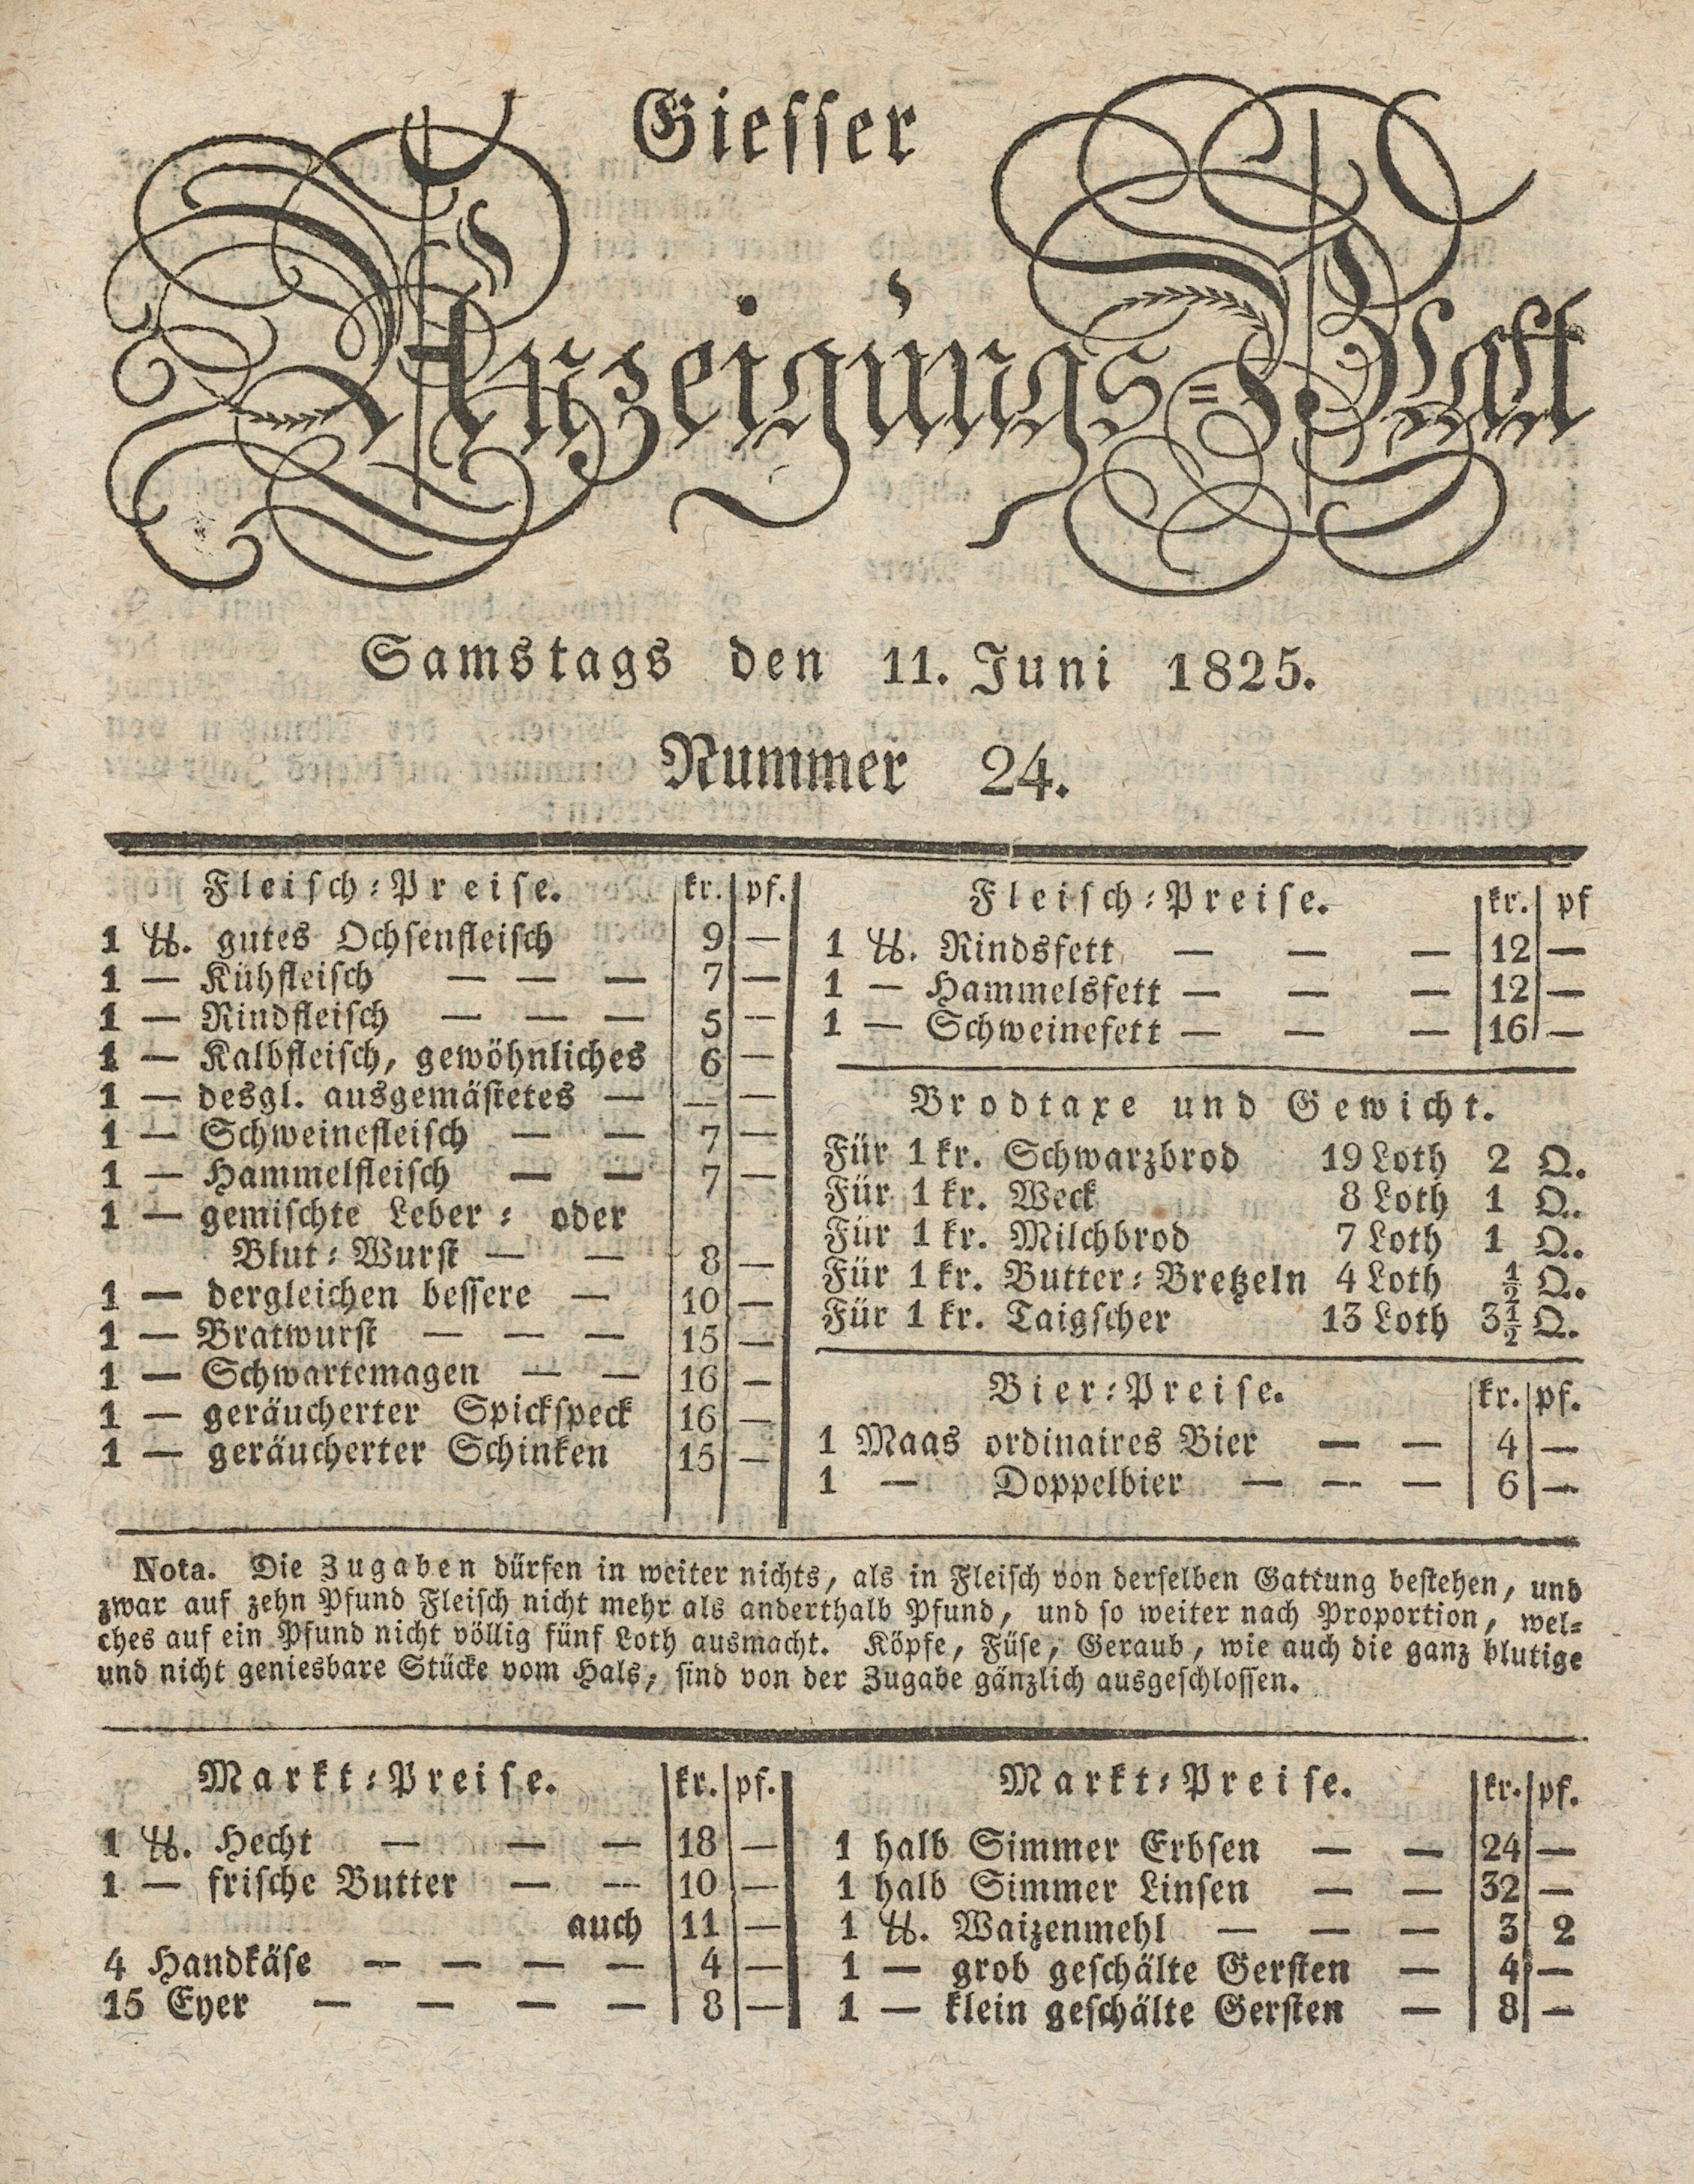 Giesser
Anzeigungs=Blatt
Samstags den 11. Juni 1825.
Nummer 24.
Fleisch=Preise. kr. pf.
1 ℔. gutes Ochsenfleisch 9 —
1 — Kühfleisch — — — 7 —
1 — Rindfleisch — — — 5 —
1 — Kalbfleisch, gewöhnliches 6 —
1 — desgl. ausgemästetes — — —
1 — Schweinefleisch — — 7 —
1 — Hammelfleisch — — 7 —
1 — gemischte Leber= oder
Blut=Wurst — — 8 —
1 — dergleichen bessere — 10 —
1 — Bratwurst — — — 15 —
1 — Schwartemagen — — 16 —
1 — geräucherter Spickspeck 16 —
1 — geräucherter Schinken 15 —
Fleisch=Preise. kr. pf
1 ℔. Rindsfett — — — 12 —
1 — Hammelsfett — — — 12 —
1 — Schweinefett — — — 16 —
Brodtaxe und Gewicht.
Für 1 kr. Schwarzbrod 19 Loth 2 Q.
Für 1 kr. Weck 8 Loth 1 Q.
Für 1 kr. Milchbrod 7 Loth 1 Q.
Für 1 kr. Butter=Bretzeln 4 Loth ½ Q.
Für 1 kr. Taigscher 13 Loth 3½ Q.
Bier=Preise. kr. pf.
1 Maas ordinaires Bier — — 4 —
1 — Doppelbier — — — 6 —
Nota. Die Zugaben dürfen in weiter nichts, als in Fleisch von derselben Gattung bestehen, und
zwar auf zehn Pfund Fleisch nicht mehr als anderthalb Pfund, und so weiter nach Proportion, wel=
ches auf ein Pfund nicht völlig fünf Loth ausmacht. Köpfe, Füse, Geraub, wie auch die ganz blutige
und nicht geniesbare Stücke vom Hals, sind von der Zugabe gänzlich ausgeschlossen.
Markt=Preise. kr. pf.
1 ℔. Hecht — — — 18 —
1 — frische Butter — — 10 —
auch 11 —
4 Handkäse — — — — 4 —
15 Eyer — — — — 8 —
Markt=Preise. kr. pf.
1 halb Simmer Erbsen — — 24 —
1 halb Simmer Linsen — — 32 —
1 ℔. Waizenmehl — — — 3 2
1 — grob geschälte Gersten — 4 —
1 — klein geschälte Gersten — 8 —